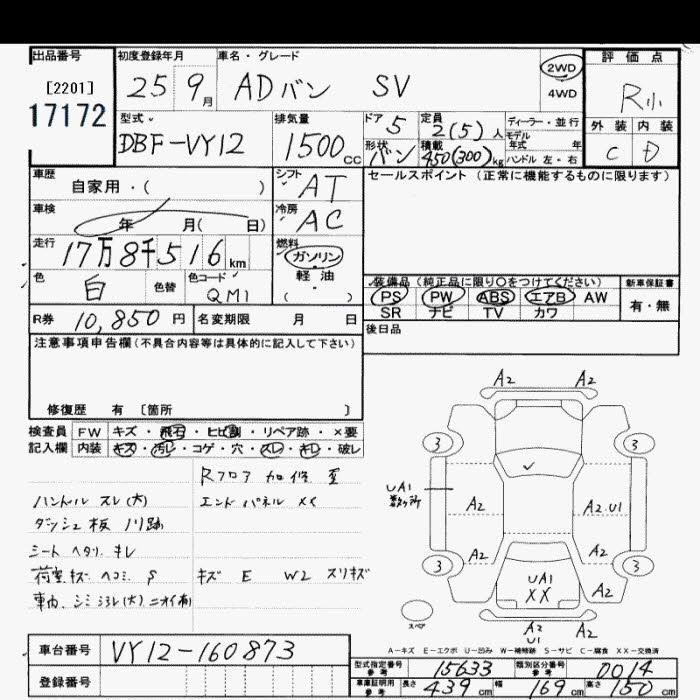 出品番号 初度登録年月 車名・グレード 評価点
[2201] 25 9月 ADバン SV 2WD R小
17172 4WD
型式 排気量 ドア 5 定員 2(5)人 ディーラー・並行 外装 内装
DBF-VY12 1500cc 形状 バン 積載 450(300)kg モデル年式 年 C D
ハンドル 左・右
車歴 自家用・( ) シフト AT セールスポイント (正常に機能するものに限ります)
車検 年 月( 日) 冷房 AC
走行 17万8千516km 燃料 ガソリン
色 白 色替 色コード QM1 軽油 ( )
装備品 (純正品に限り○をつけてください) 新車保証書
PS PW ABS エアB AW 有・無
SR ナビ TV カワ
R券 10,850円 名変期限 月 日 後日品
注意事項申告欄(不具合内容等は具体的に記入して下さい)
修復歴 有 〔箇所 〕
検査員 FW キズ・飛石・ヒビ割・リペア跡・×要
記入欄 内装 キズ・汚レ・コゲ・穴・スレ・キレ・破レ
Rフロア 加修 歪
ハンドル スレ(大) エンドパネル XX
ダッシュ板 ノリ跡
シート ヘタリ. キレ
荷室 キズ ヘコミ S キズ E W2 スリキズ
車内. シミ ヨゴレ(大) ニオイ有
A2 A2
3 3
UA1 数ヶ所 A2 A2.U1
A2 A2
3 3
UA1 XX A2
スペア A2 U1 A2
A-キズ E-エクボ U-凹み W-補修跡 S-サビ C-腐食 XX-交換済
車台番号 VY12-160873
登録番号
型式指定番号 参考 15633 類別区分番号 参考 0014
車庫証明用 参考 長さ 439cm 幅 169cm 高さ 150cm